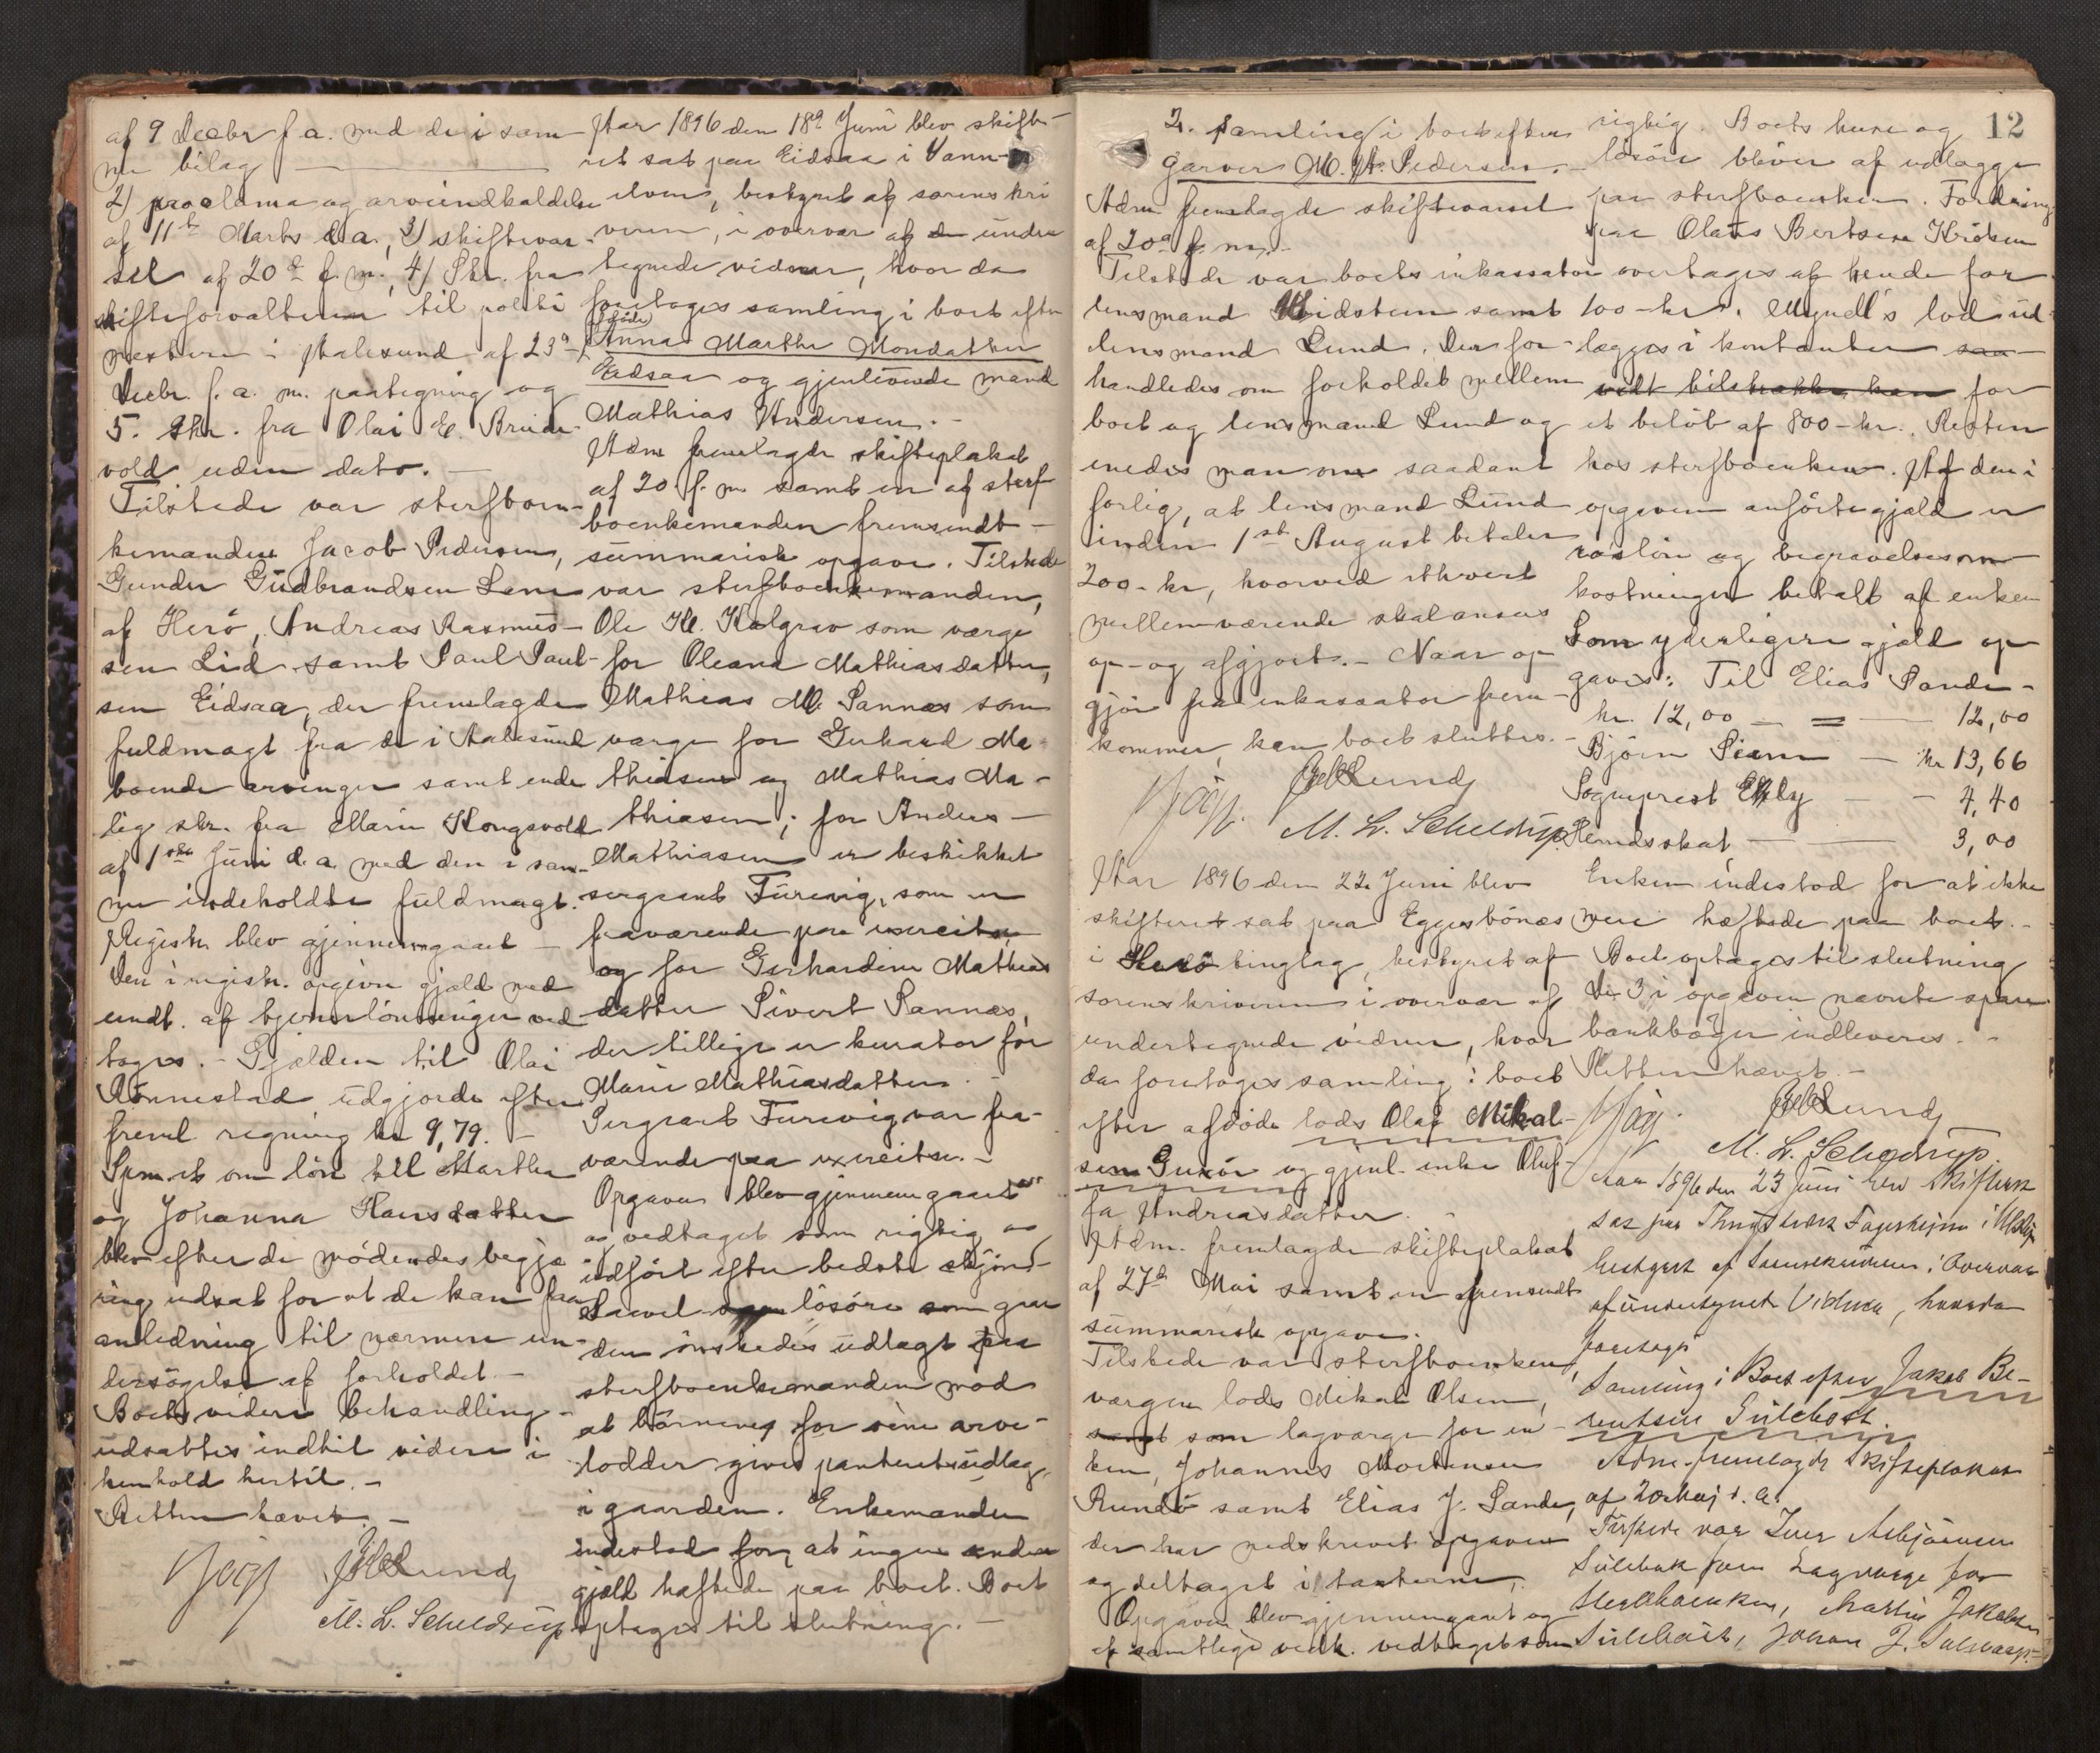 af 9 Decbr f. a. med de i sam-
me bilag
2) proclama og arveindkaldelse
af 11te Marts d. a., 3) skiftevar-
sel af 20de f. m., 4) Skr. fra
skifteforvalteren til politi
mesteren i Aalesund af 23de
Decbr. f. a. m. paategning og
5. Skr. fra Olai E. Brude-
vold uden dato. —
Tilstede var sterfboen-
kemanden Jacob Pedersen,
Gunder Gudbrandsen Lene
af Herö, Andreas Rasmus-
sen Lid samt Paul Paul-
sen Eidsaa, der fremlagde
fuldmagt fra de i Aalesund
boende arvinger samt ende
lig skr. fra Marie Kongsvold
af 1ste Juni d. a. med den i sam-
me indeholdte fuldmagt.
Registr. blev gjennemgaaet —
Den i registr. opgivne gjæld med
undt. af tjenerlönninger ved
toges. - Gjælden til Olai
Rönnestad udgjorde efter
freml. regning kr 9,79. —
Spm.et om lön til Marthe
og Johanna Hansdatter
blev efter de mödendes begjæ
ring udsat for at de kan faa
anledning til nærmere un-
dersögelse af forholdet. —
Boets videre behandling
udsattes indtil videre i
henhold hertil. —
Retten hævet. —
M. L. Scheldrup
Aar 1896 den 18de Juni blev skifte-
ret sat paa Eidsaa i Vann-
elven, bestyret af sorenskri
veren, i overvær af de under
tegnede vidner, hvor da
foretoges samling i boet efter
afdöde
Anna Marthe Monsdatter
Eidsaa og gjenlevende mand
Mathias Andersen. —
Adm fremlagde skifteplakat
af 20. f. m. samt en af sterf
boenkemanden fremsendt —
summarisk opgave. Tilstede
var sterfboenkemanden,
Ole K. Kalgrav som værge
for Oleana Mathiasdatter,
Mathias M. Sannæs som
værge for Gerhard Ma-
thiasen og Mathias Ma-
thiasen; for Anders —
Mathiasen er beskikket
sergeant Furevig, som er
fraværende paa exercitse,
og for Gerhardine Mathias
datter Sivert Sannæs,
der tillige er kurator for
Marie Mathiasdatter. —
Sergeant Furevig var fra-
værende paa exercitse. —
Opgaven blev gjennemgaaet
og vedtaget som rigtig og
udfört efter bedste skjön. —
Saavel lösöre som gaar
den önskedes udlagt paa
sterfboenkemanden mod
at börnenes for sine arve-
lodder gives panteretsudlæg
i gaarden. Enkemanden
indestod for, at ingen anden
gjæld hæftede paa boet. Boet
optages til slutning. —
12
2. Samling i boet efter
garver M. A. Pedersen. —
Adm fremlagde skiftevarsel
af 20de f. m. —
Tilstede var boets inkassator
lensmand Hidsteen samt
lensmand Lund. Der for-
handledes om forholdet mellem
boet og lensmand Lund og
enedes man om saadant
forlig, at lensmand Lund
inden 1ste August betaler
200- kr, hvorved ethvert
mellemværende skal ansees
op- og afgjort. - Naar op
gjör fra inkassator frem-
kommer, kan boet sluttes. —
M. L. Scheldrup
Aar 1896 den 22. Juni blev
skifteret sat paa Eggesbönæs
i Herö tinglag, bestyret af
sorenskriveren i overvær af
undertegnede vidner, hvor
da foretoges samling i boet
efter afdöde lods Olaf Mikal-
sen Gurskö og gjenl. enke Oluf-
fa Andreasdatter. —
Adm. fremlagde skifteplakat
af 27de Mai samt en fremsendt
summarisk opgave.
Tilstede var sterfboenken,
værgen lods Mikal Olsen,
samt som lagværge for en-
ken, Johannes Mortensen
Rundö samt Elias J. Sande,
der har nedskrevet opgaven
og deltaget i taxterne.
Opgaven blev gjennemgaaet og
af samtlige vedk. vedtaget som
rigtig. Boets huse og
lösöre bliver af udlægge
paa sterfboenken. Fordring
paa Olaus Bertsen Kröken
overtages af hende for
100- kr. Myndl's lod ud
lægges i kontanter saa
vidt tilstrække kan for
et belöb af 800- kr. Resten
hos sterfboenken. Af den i
opgaven anförte gjæld er
röslön og begravelsesom
kostninger betalt af enken
Som yderligere gjæld op
gaves: Til Elias Sande -
kr. 12,00 — = — 12,00
Björn Seam — kr 13,66
Sogneprest — - 4,40
Herredsskat — 3,00
Enken indestod for at ikke
mere hæftede paa boet. —
Boet optages til slutning
De 3 i opgaven nævnte spare
bankböger indleveres. —
Retten hævet. —
M. L. Scheldrup.
Aar 1896 den 23 Juni blev Skifteret
sat paa Thingstedet Fagerheim i
bestyret af Sorenskriveren i Overvær
af undertegnede Vidner, hvorda
foretoges
Samling i Boet efter Jakob Be-
rentsen Sulebost.
Adm. fremlagde Skifteplakat
af 20 Maj d. a.
Tilstede var Iver Asbjörnsen
Sulebak som Lagværge for
Sterfboenken, Martin Jakobsen
Sulebost, Johan J.